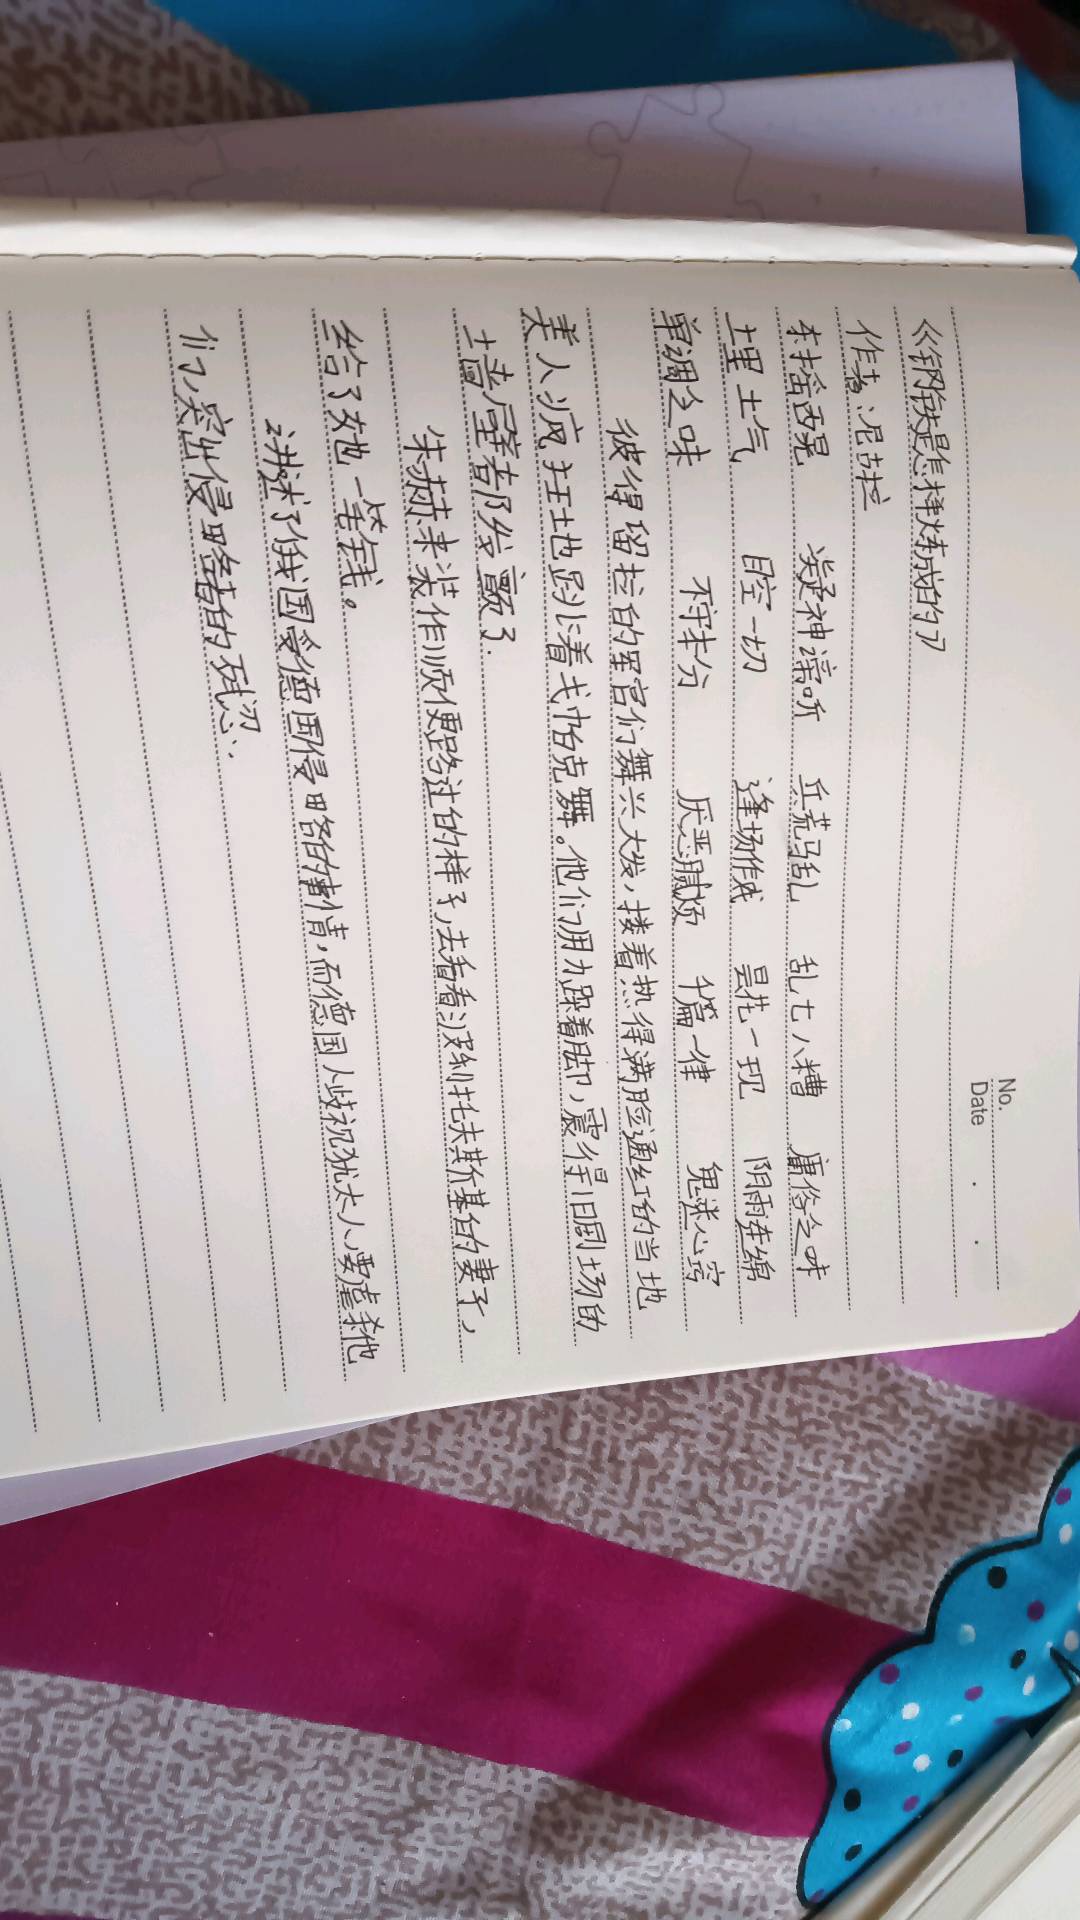 No.
Date
《钢铁是怎样炼成的》
作者:尼古拉
东摇西晃 凝神谛听 兵荒马乱 乱七八糟 庸俗之味
土里土气 目空一切 逢场作戏 昙花一现 阴雨连绵
单调乏味 不守本分 厌恶腻烦 千篇一律 鬼迷心窍
彼得留拉的军官们舞兴大发,搂着热得满脸通红的当地
美人疯狂地跳着戈帕克舞。他们用力跺着脚,震得旧剧场的
墙壁都发颤了.
朱赫来装作顺便路过的样子,去看看波利托夫斯基的妻子,
给了她一笔钱。
讲述了俄国受德国侵略的事情,而德国人歧视犹太人,要虐杀他
们,突出侵略者的残忍.